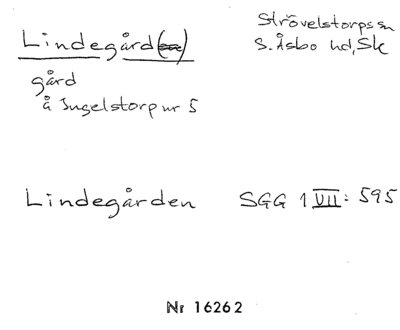 Lindegård(en)
Strövelstorps sn
S. Åsbo hd, Sk
gård
å Ingelstorp nr 5
Lindegården SGG 1 VII: 595
Nr 16262